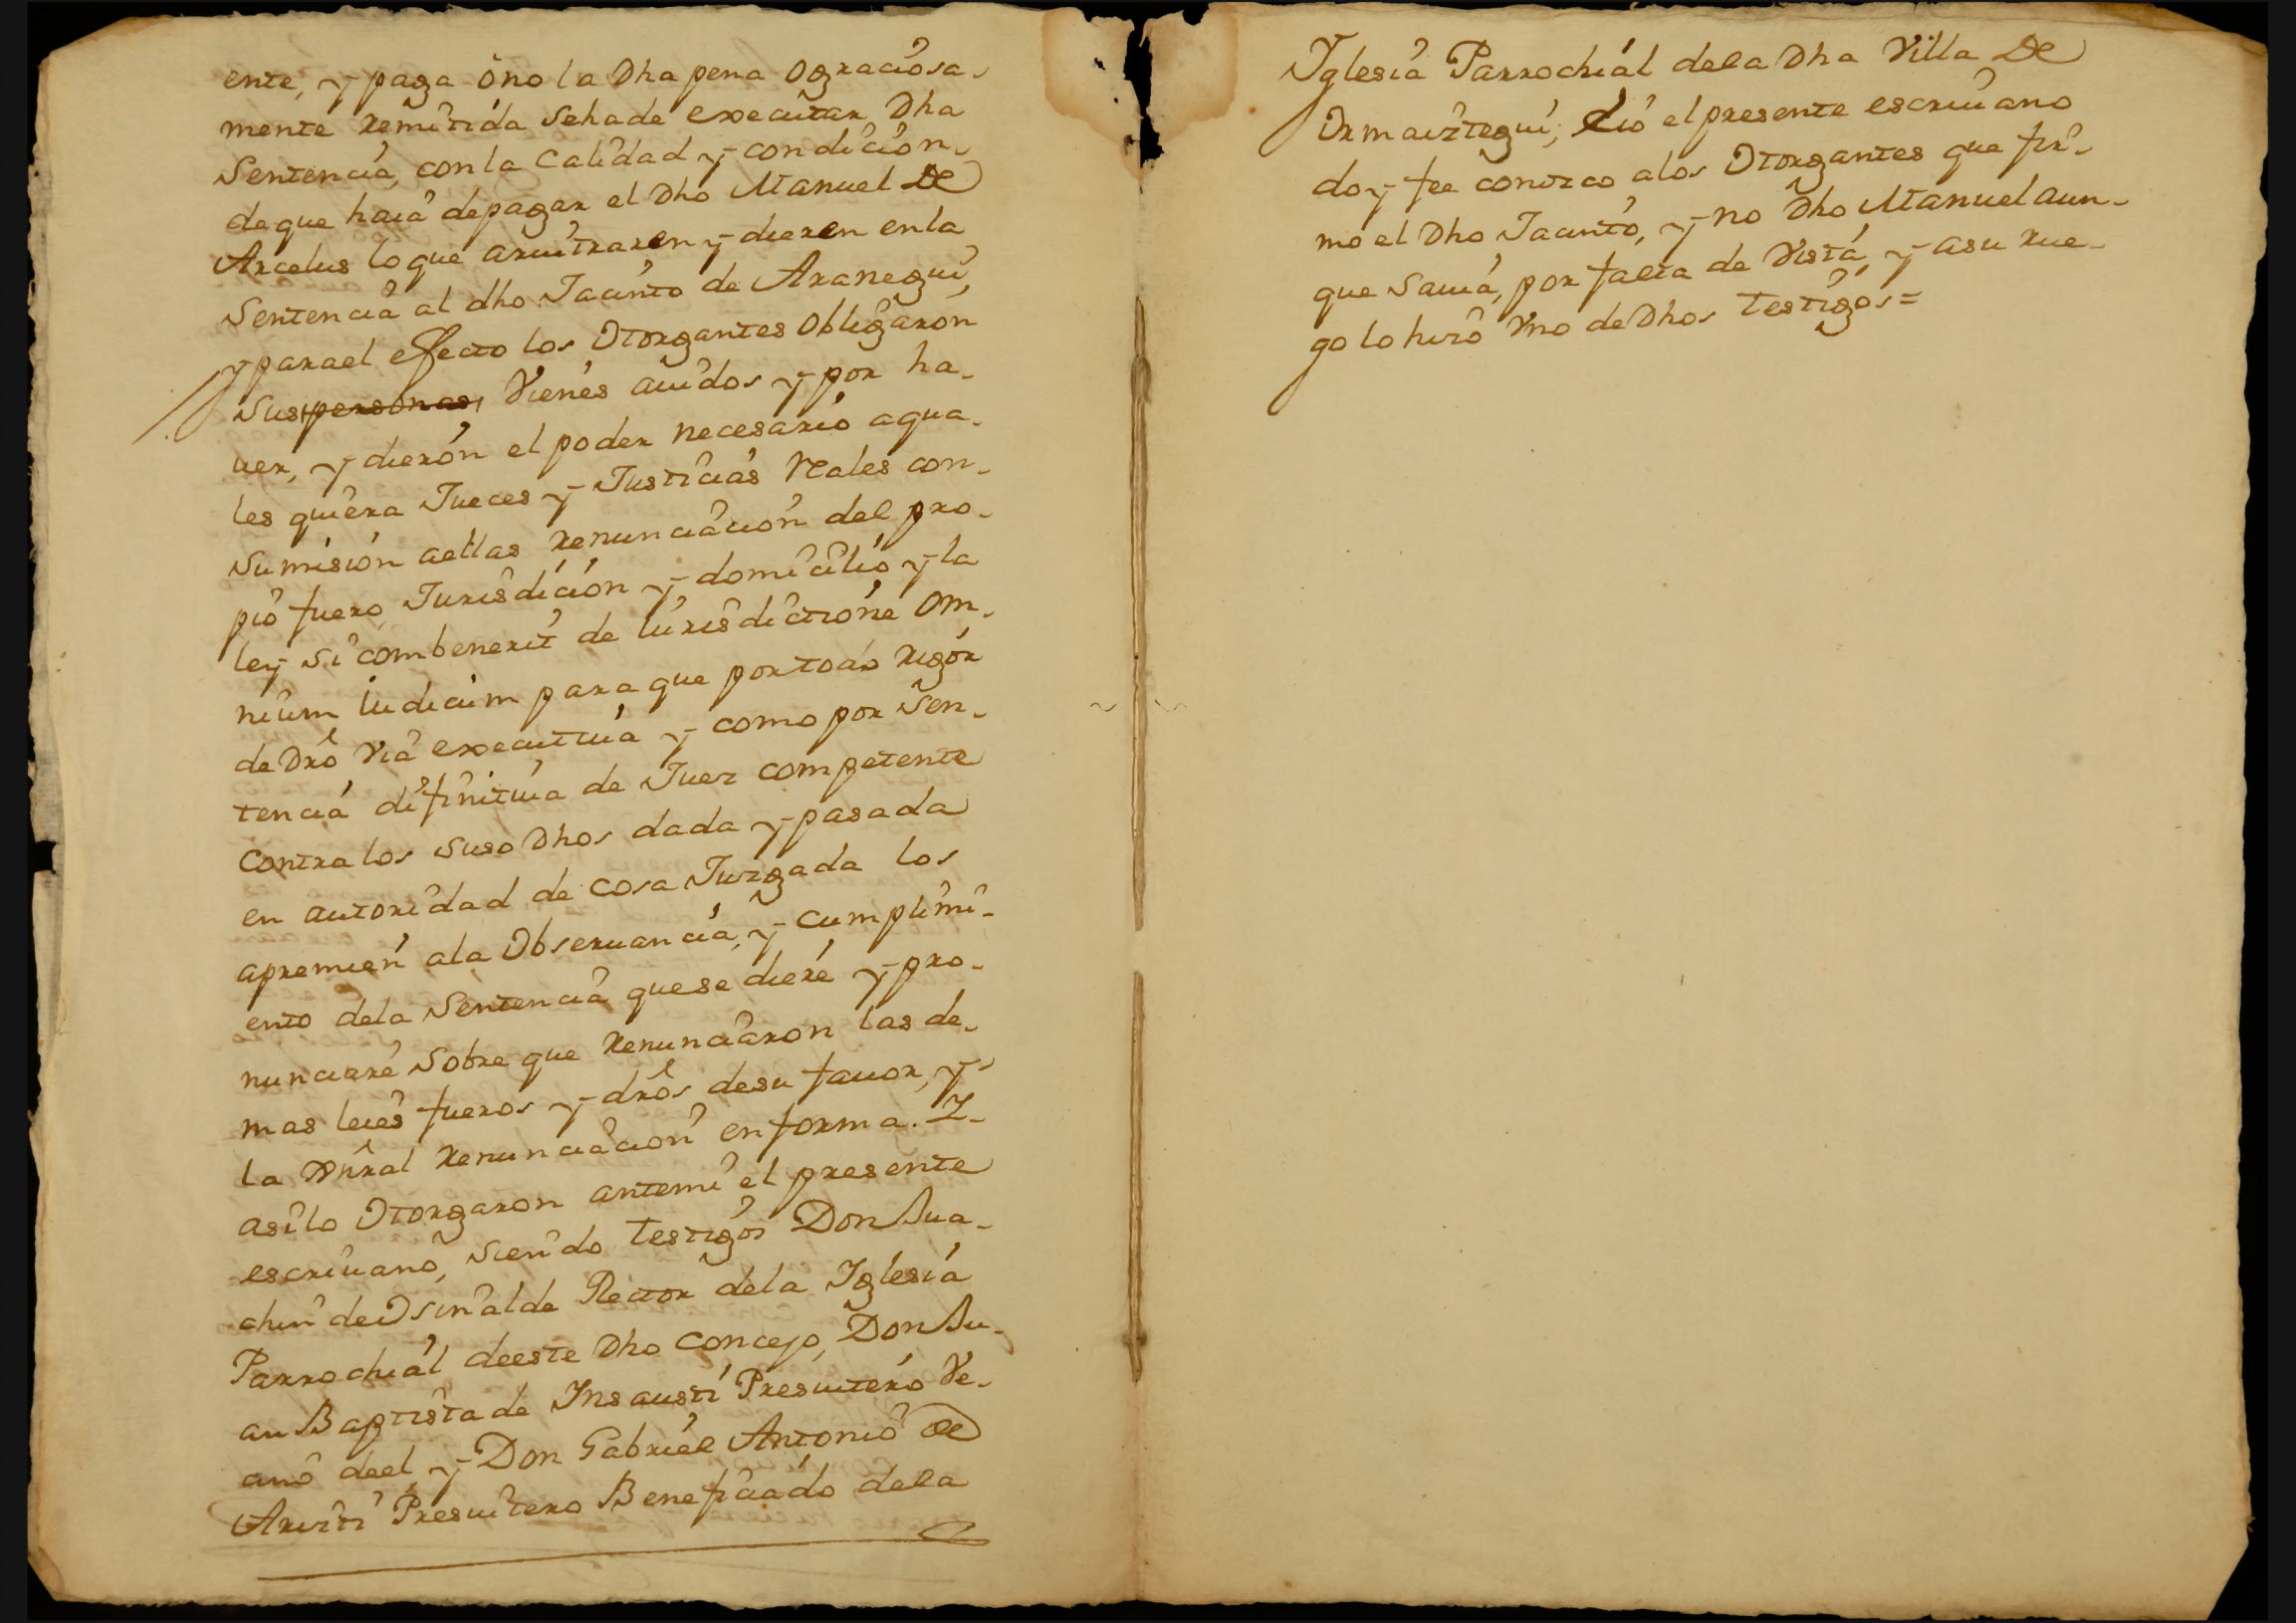 ente, y paga ô no la Dha pena o graciosa-
mente remitida seha de executar Dha
Sentencia, con la calidad y condicion-
de que haia de pagar el Dho Manuel De
Arcelus lo que aruitraren y dieren en la
Sentencia al dho Jacinto de Aranegui,
y para el effecto los Otorgantes obligaron
sus personas, Vienes auidos y por ha-
uer, y dieron el poder necesario a qua-
les quiera Jueces y Justicias Reales con-
sumision aellas renunciacion del pro-
pio fuero Jurisdicion y domicilio y la
ley si combenerit de iurisdictione om-
nium iudicum para que por todo rigor
de Drô Via executiua y como por sen-
tencia difinitiua de Juez competente
contra los suso Dhos dada y pasada
en autoridad de cosa Juzgada los
apremien ala Obseruancia, y cumplimi-
ento dela Sentencia que se diere y pro-
nunciare sobre que renunciaron las de-
mas leies fueros y drôs de su fauor, y
la gñral renunciacion en forma. I-
asilo Otorgaron antemi el presente
escriuano, siendo testigos Don Jua-
chin de Osinalde Rector dela Iglesia
Parrochial deeste Dho concejo, Don Ju-
an Baptista de Insausti Presuitero Ve-
cino deel y Don Gabriel Antonio de
Aruiti Presuitero Beneficiado dela
Yglesia Parrochial dela Dha Villa De
Ormaiztegui; dio el presente escriuano
doy fee conozco alos Otorgantes que fir-
mo el Dho Jacinto, y no Dho Manuel aun-
que sauia, por falta de Vista, y asu rue-
go lo hizo Vno de Dhos testigos=